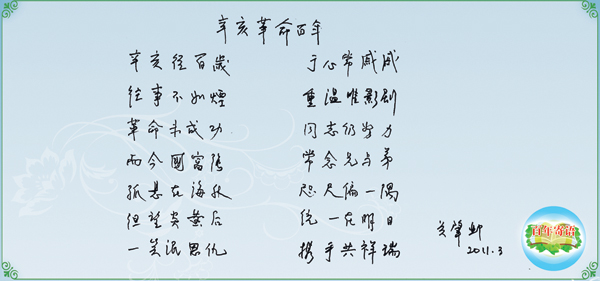 辛亥革命百年
辛亥经百歲 于心常戚戚
往事不如煙 重温唯影剧
革命未成功 同志仍努力
而今國富强 常念兄与弟
孤悬在海外 咫尺偏一隅
但望炎黄后 统一在明日
一笑泯恩仇 携手共祥瑞
关肇邺
2011.3
百年寄语